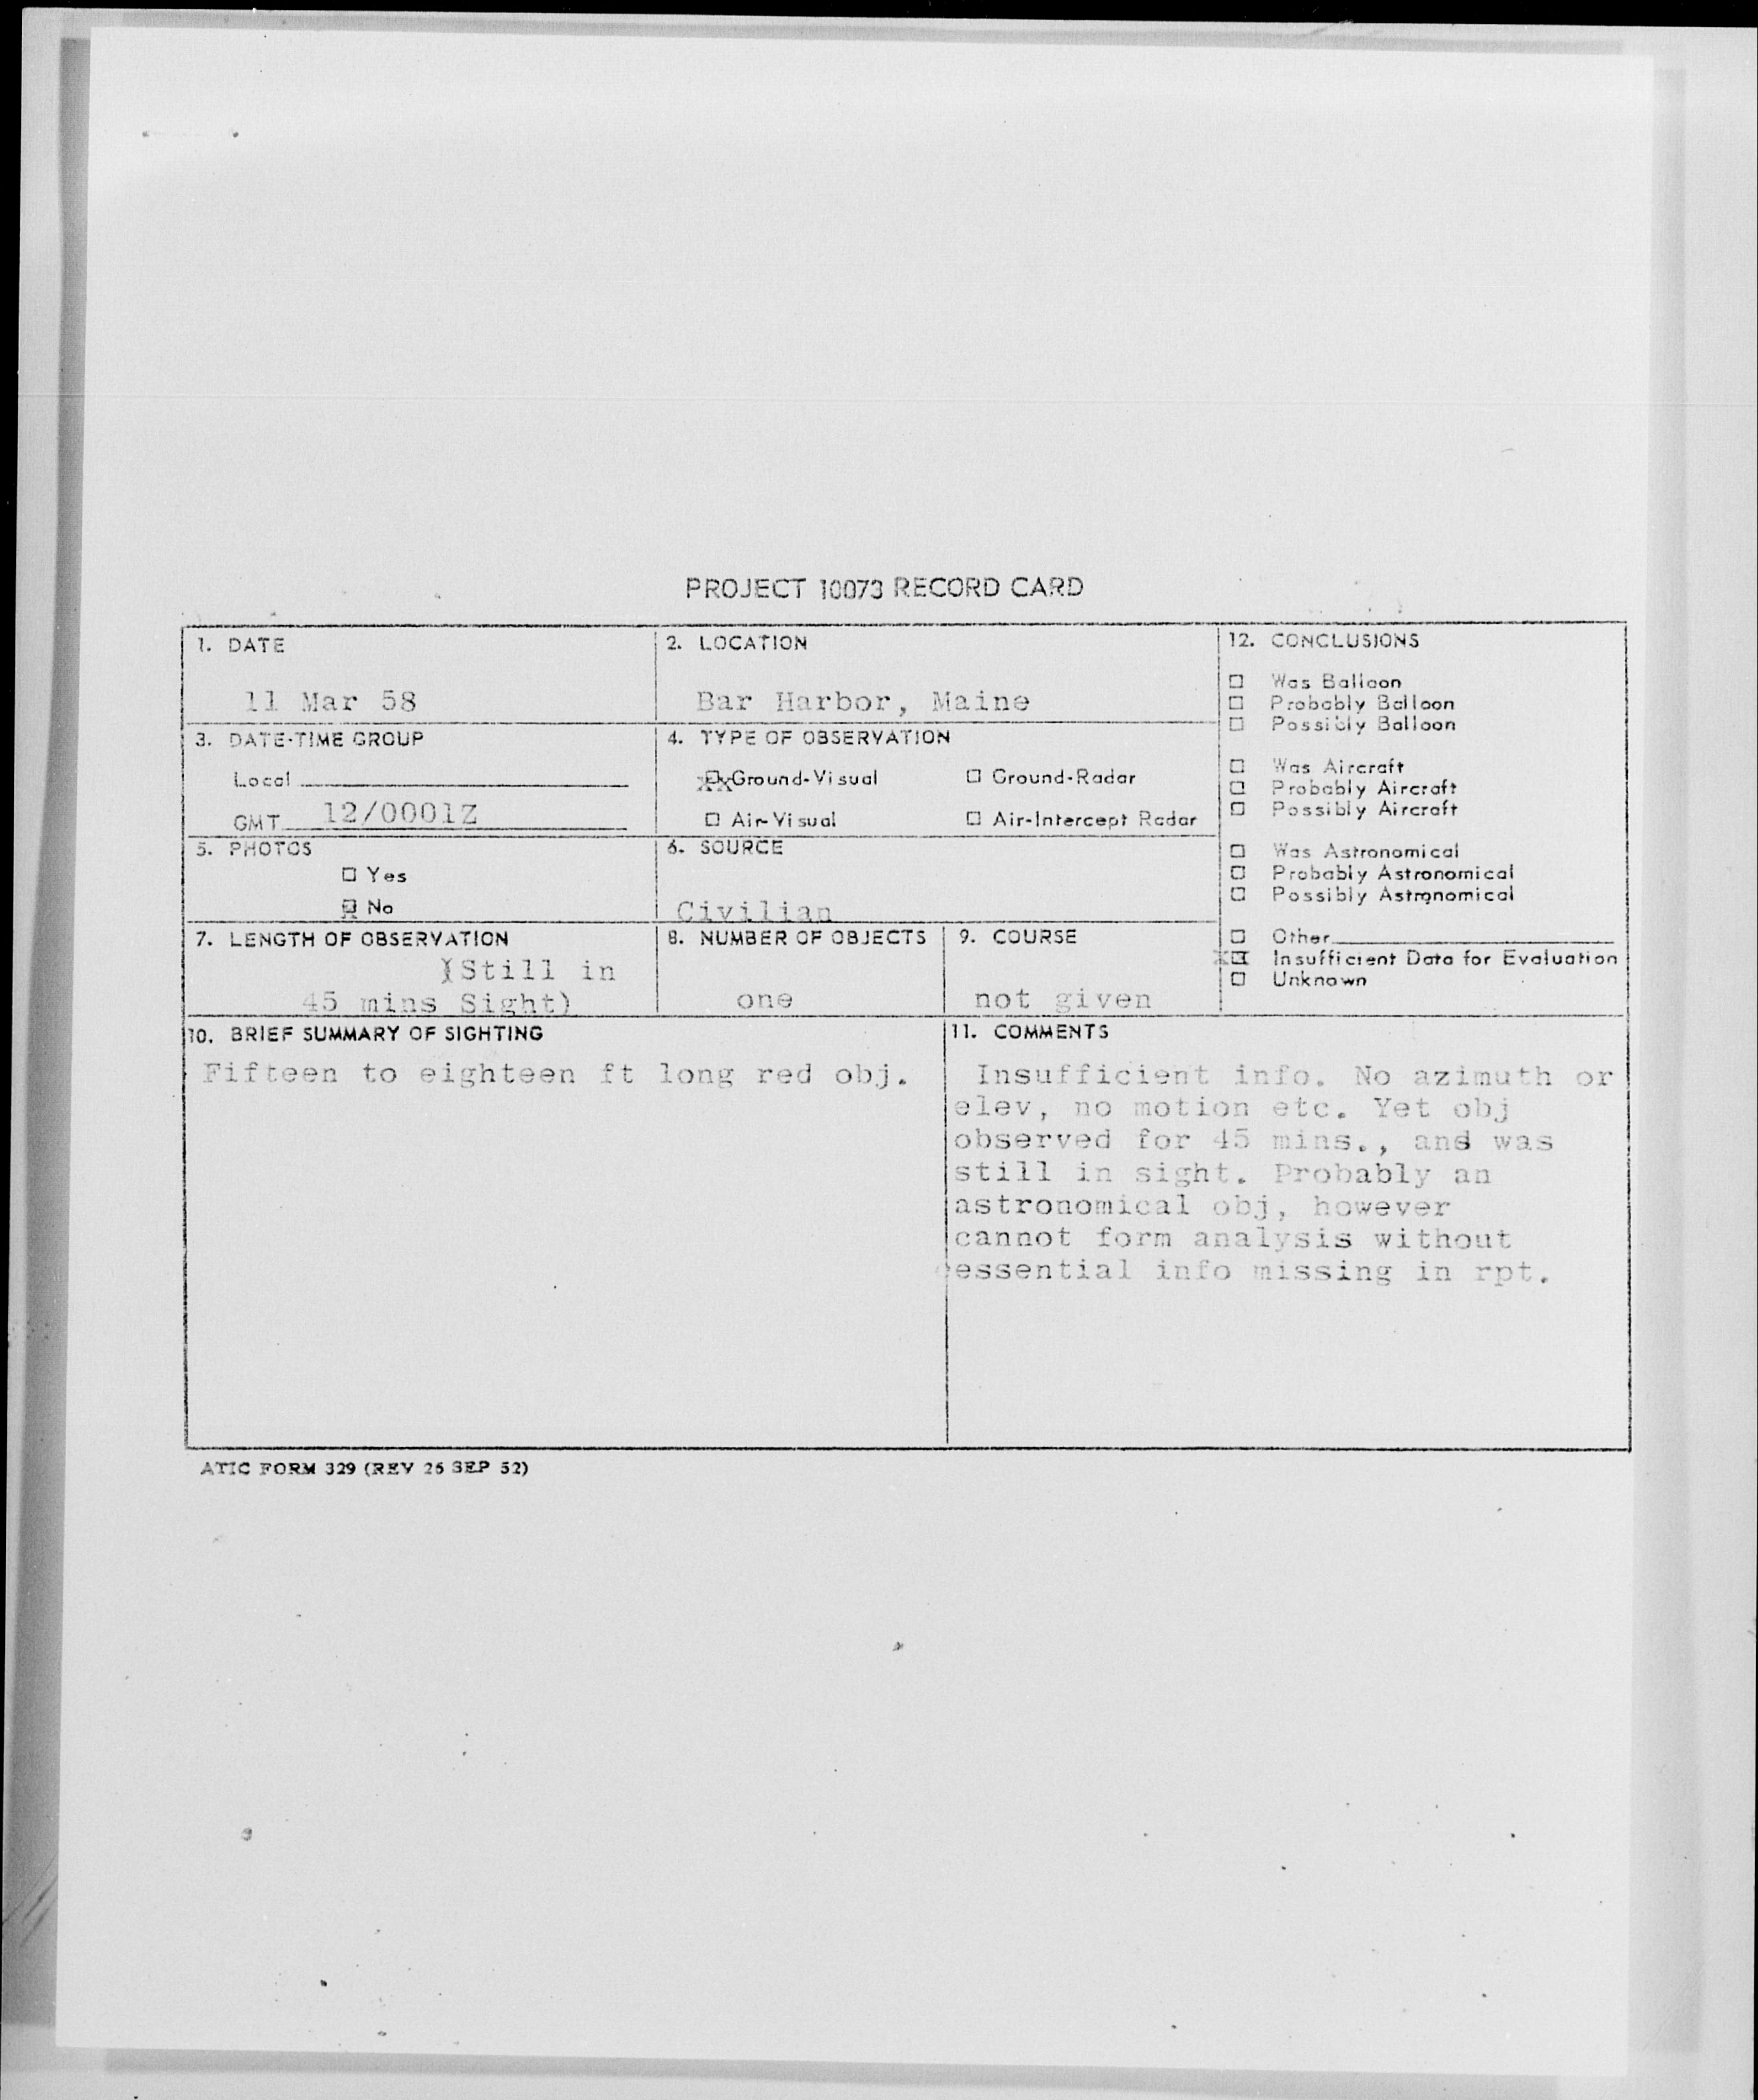 PROJECT 10073 RECORD CARD
1. DATE
11 Mar 58
2. LOCATION
Bar Harbor, Maine
3. DATE-TIME GROUP
Local
GMT 12/0001Z
4. TYPE OF OBSERVATION
Ground-Visual Ground-Radar
Air-Visual Air-Intercept Radar
5. PHOTOS
Yes
No
6. SOURCE
Civilian
7. LENGTH OF OBSERVATION
(Still in
45 mins Sight)
8. NUMBER OF OBJECTS
one
9. COURSE
not given
12. CONCLUSIONS
Was Balloon
Probably Balloon
Possibly Balloon
Was Aircraft
Probably Aircraft
Possibly Aircraft
Was Astronomical
Probably Astronomical
Possibly Astronomical
Other
Insufficient Data for Evaluation
Unknown
10. BRIEF SUMMARY OF SIGHTING
Fifteen to eighteen ft long red obj.
11. COMMENTS
Insufficient info. No azimuth or
elev, no motion etc. Yet obj
observed for 45 mins., and was
still in sight. Probably an
astronomical obj, however
cannot form analysis without
essential info missing in rpt.
ATIC FORM 329 (REV 26 SEP 52)